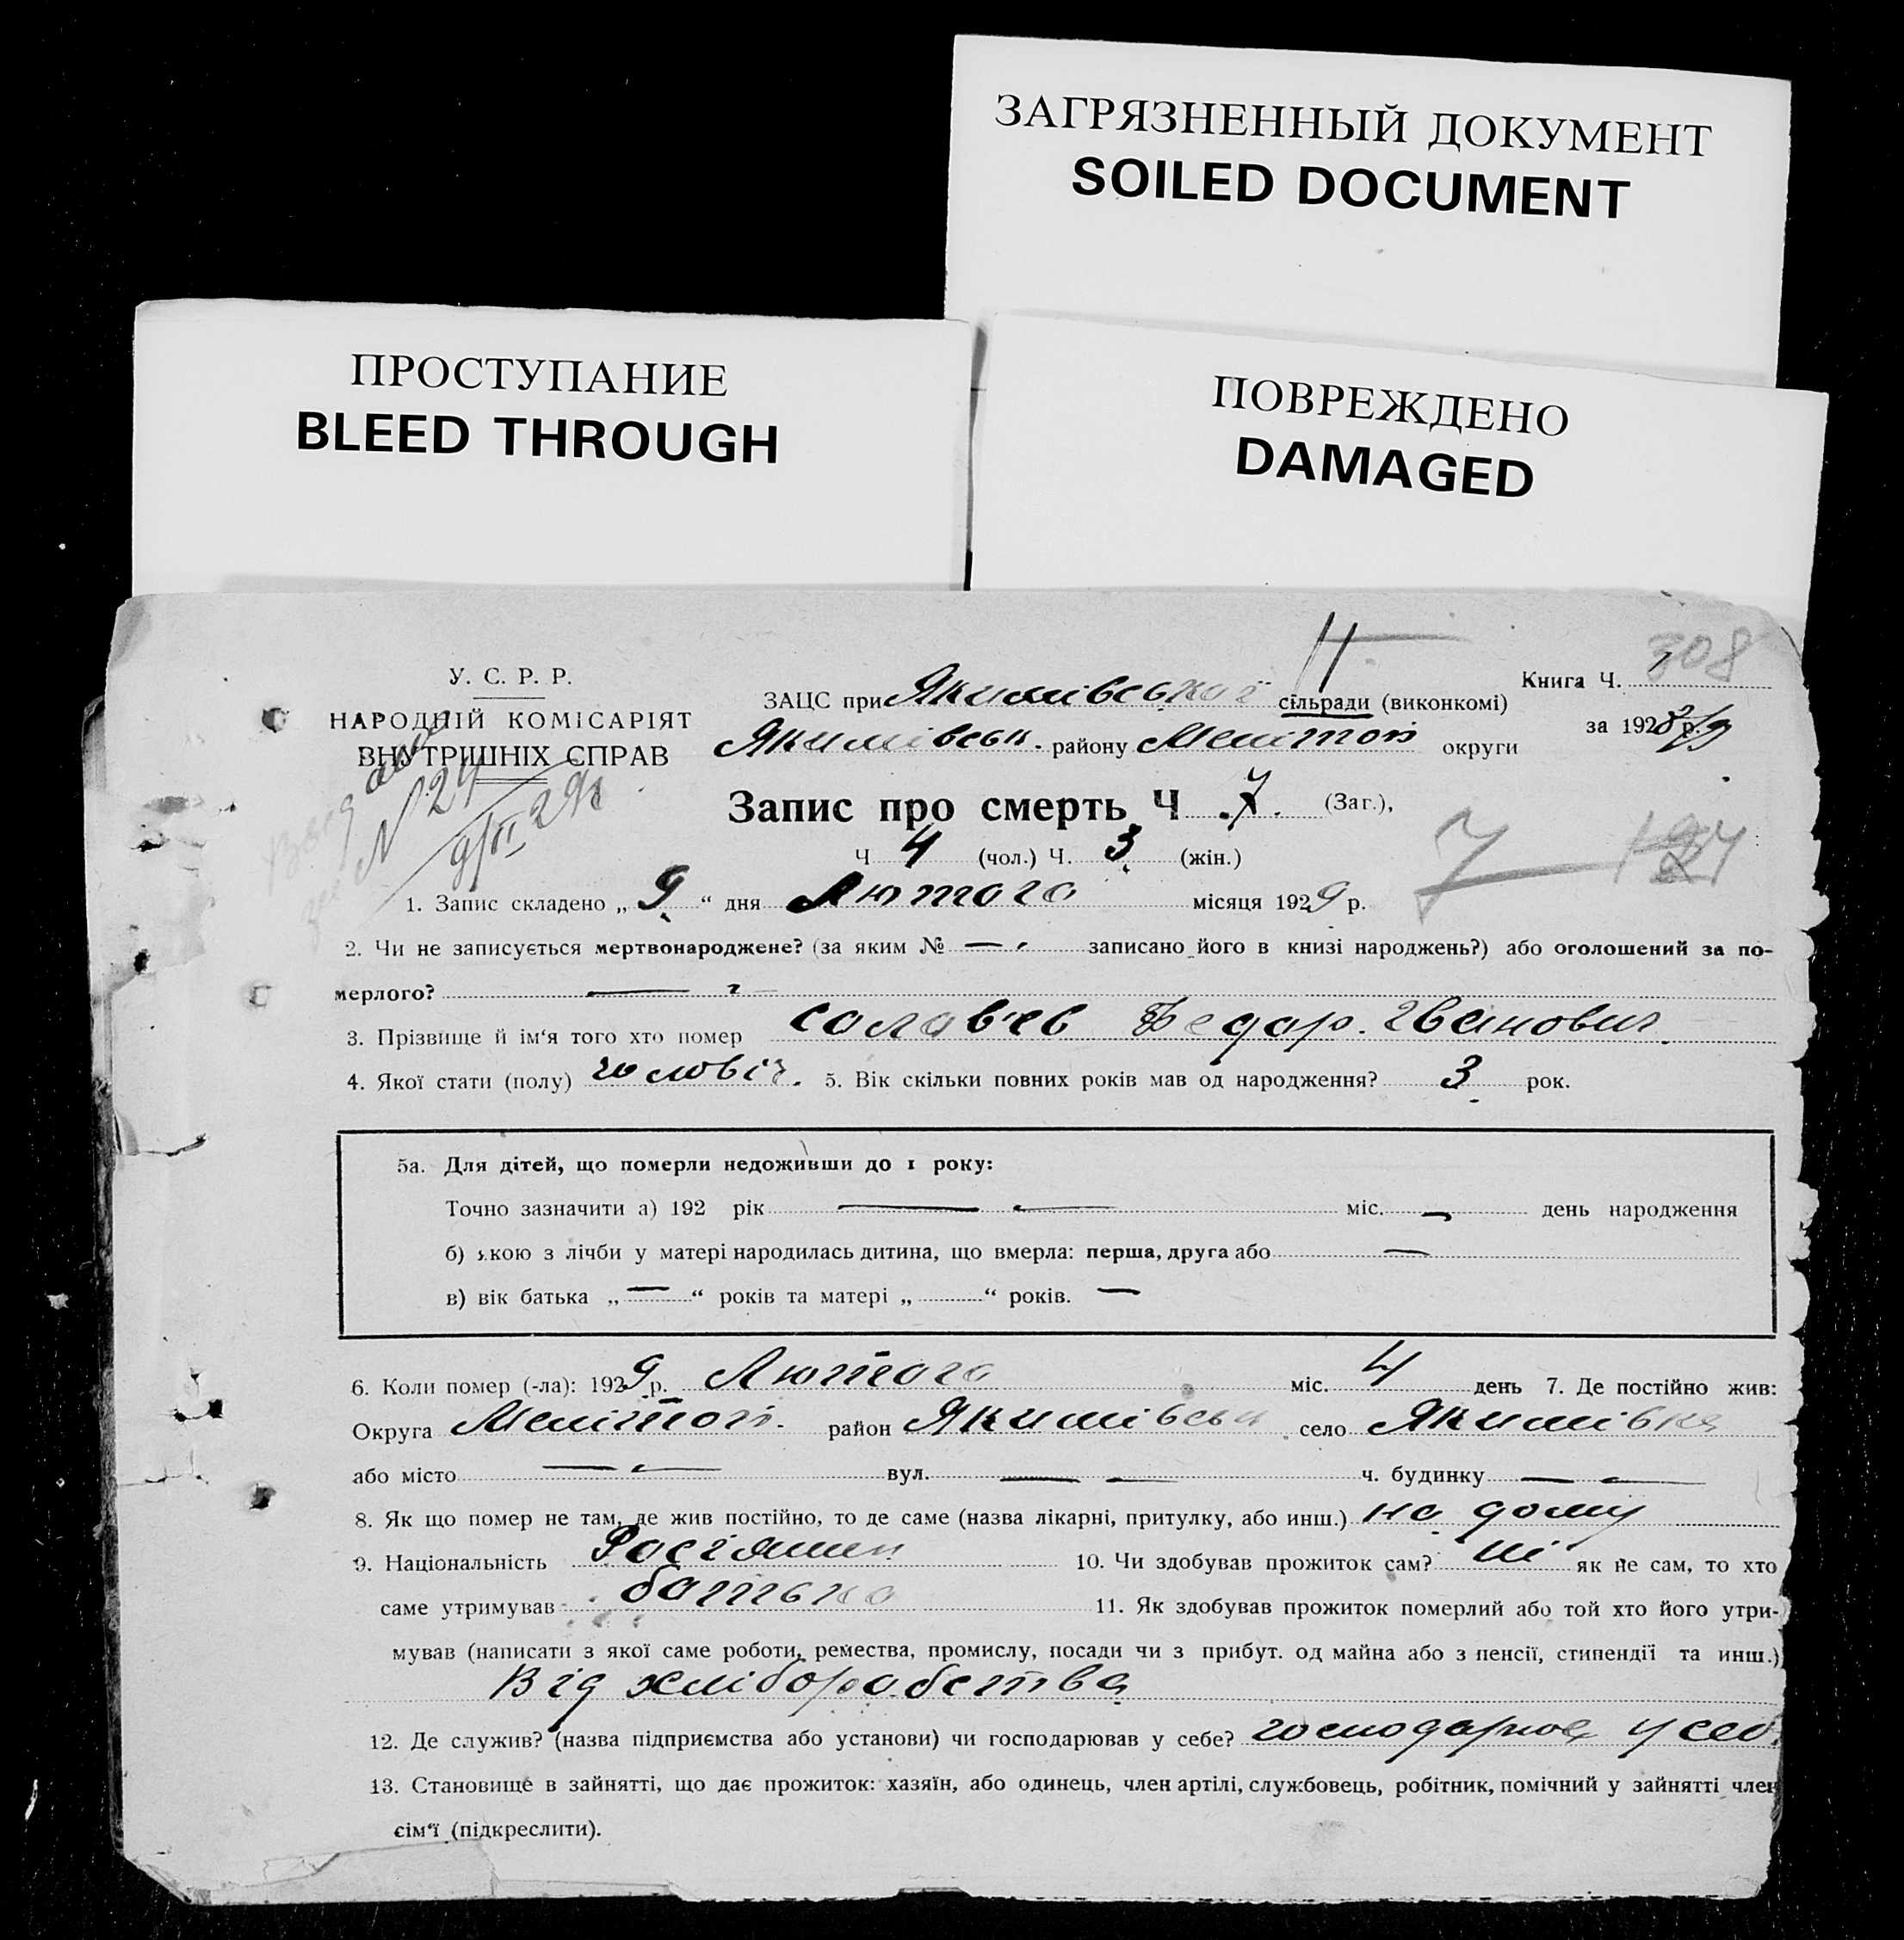 ЗАГРЯЗНЕННЫЙ ДОКУМЕНТ
SOILED DOCUMENT
ПРОСТУПАНИЕ
BLEED THROUGH
ПОВРЕЖДЕНО
DAMAGED
308
У. С. Р. Р.
НАРОДНІЙ КОМІСАРІЯТ
ВНУТРІШНІХ СПРАВ
Книга Ч. 1
ЗАЦС при Якимівської сільради (виконкомі)
за 1928/9 р.
Якимівськ. району Меліттоп округи
N 24
9/II 29
Запис про смерть Ч. 7. (Заг.),
7
Ч 4 (чол.) Ч. 3 (жін.)
1. Запис складено „ 9 “ дня Лютого місяця 1929 р.
2. Чи не записується мертвонароджене? (за яким № — записано його в книзі народжень?) або оголошений за по-
мерлого? —
3. Прізвище й ім‘я того хто помер Солов'єв Федор. Іванович
4. Якої стати (полу) чоловіч. 5. Вік скільки повних років мав од народження? 3 рок.
5а. Для дітей, що померли недоживши до 1 року:
Точно зазначити а) 192 рік — міс. — день народження
б) якою з лічби у матері народилась дитина, що вмерла: перша, друга або —
в) вік батька „ — “ років та матері „ “ років. —
6. Коли помер (-ла): 1929 р. Лютого міс. 4 день 7. Де постійно жив:
Округа Меліттоп. район Якимівськ село Якимівка
або місто — вул. — ч. будинку —
8. Як що помер не там, де жив постійно, то де саме (назва лікарні, притулку, або инш.) на дому
9. Національність Росіянин 10. Чи здобував прожиток сам? ні як не сам, то хто
саме утримував батько 11. Як здобував прожиток померлий або той хто його утри-
мував (написати з якої саме роботи, ремества, промислу, посади чи з прибут. од майна або з пенсії, стипендії та инш.)
Від хлібороб.ства
12. Де служив? (назва підприємства або установи) чи господарював у себе? у себ.
13. Становище в зайнятті, що дає прожиток: хазяїн, або одинець, член артілі, службовець, робітник, помічний у зайнятті член
сім‘ї (підкреслити).